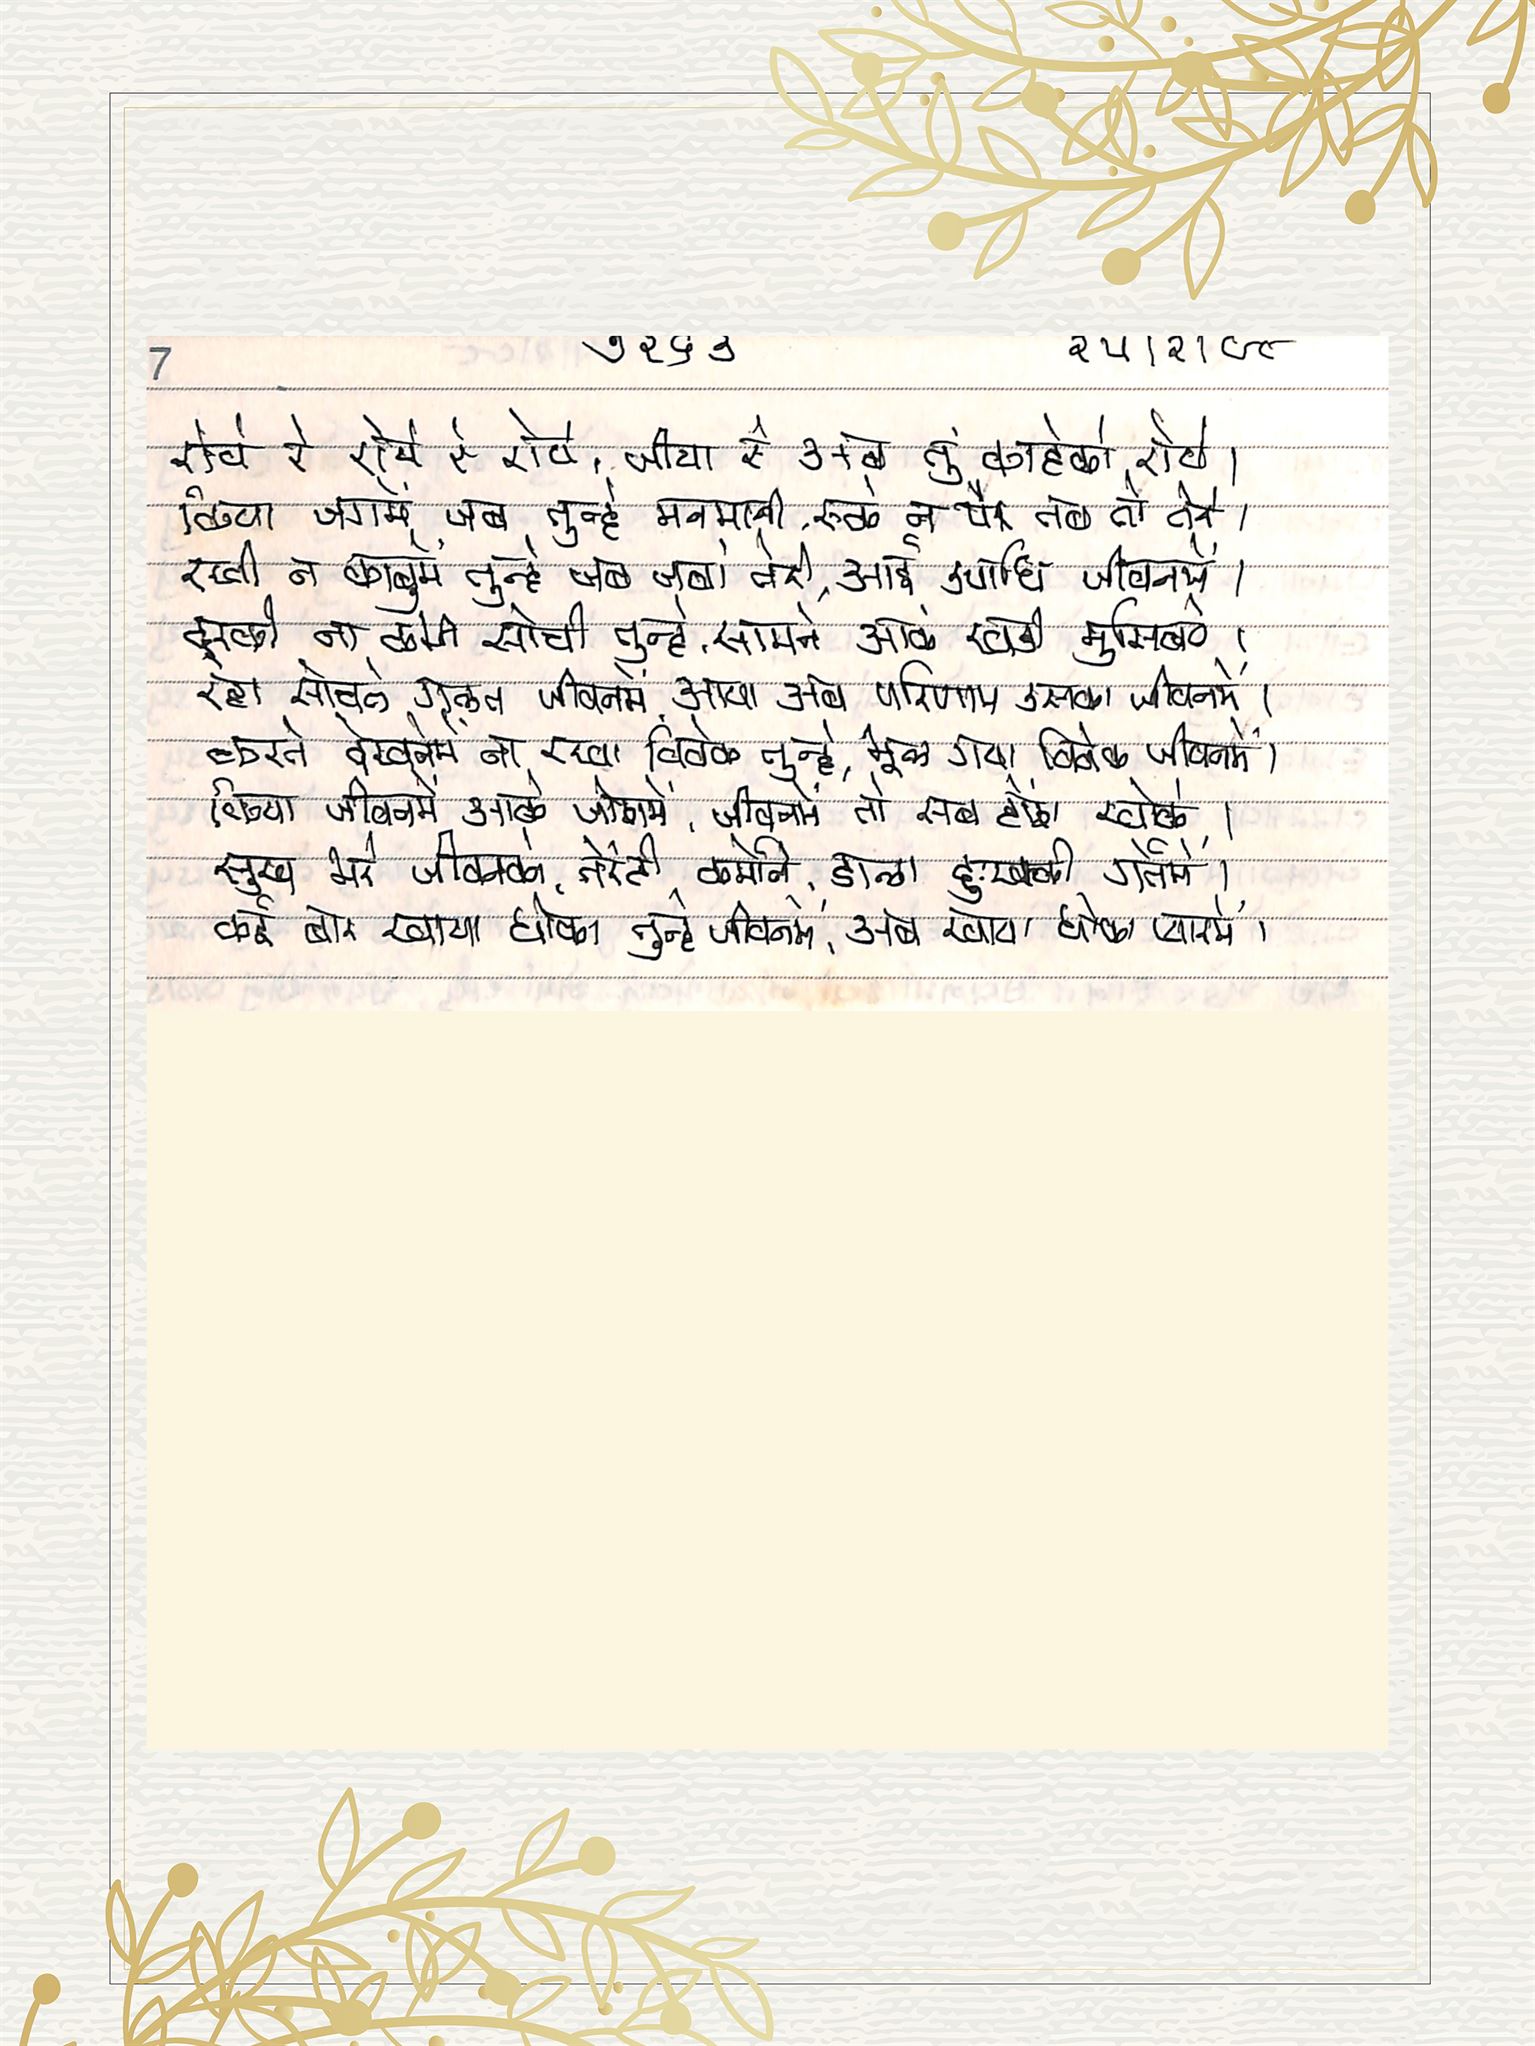 7 ७२५३ २५।२।९८
रोये रे रोये रे रोये, जीया रे अब तुं काहेको रोये।
किया जगमें जब तुन्हे मनमानी, रुके न पैर तब तो तेरे।
रखी न काबुमें तुन्हे जब जबां तेरी, आई उपाधि जीवनमें।
दूरकी ना कभी सोची तुन्हे, सामने आके खडी मुसिबते।
रहा सोचते गलत जीवनमें, आया अब परिणाम उसका जीवनमें।
करते देखनेमें ना रखा विवेक तुन्हे, भूल गया विवेक जीवनमें।
किया जीवनमें आके जोशमें, जीवनमें तो सब होश खोके।
सुख भरे जीवनको, तेरेही कर्मोने, डाला दुःखकी गर्तमें।
कई बार खाया धोका तुन्हे जीवनमें, अब खाया धोका प्यारमें।